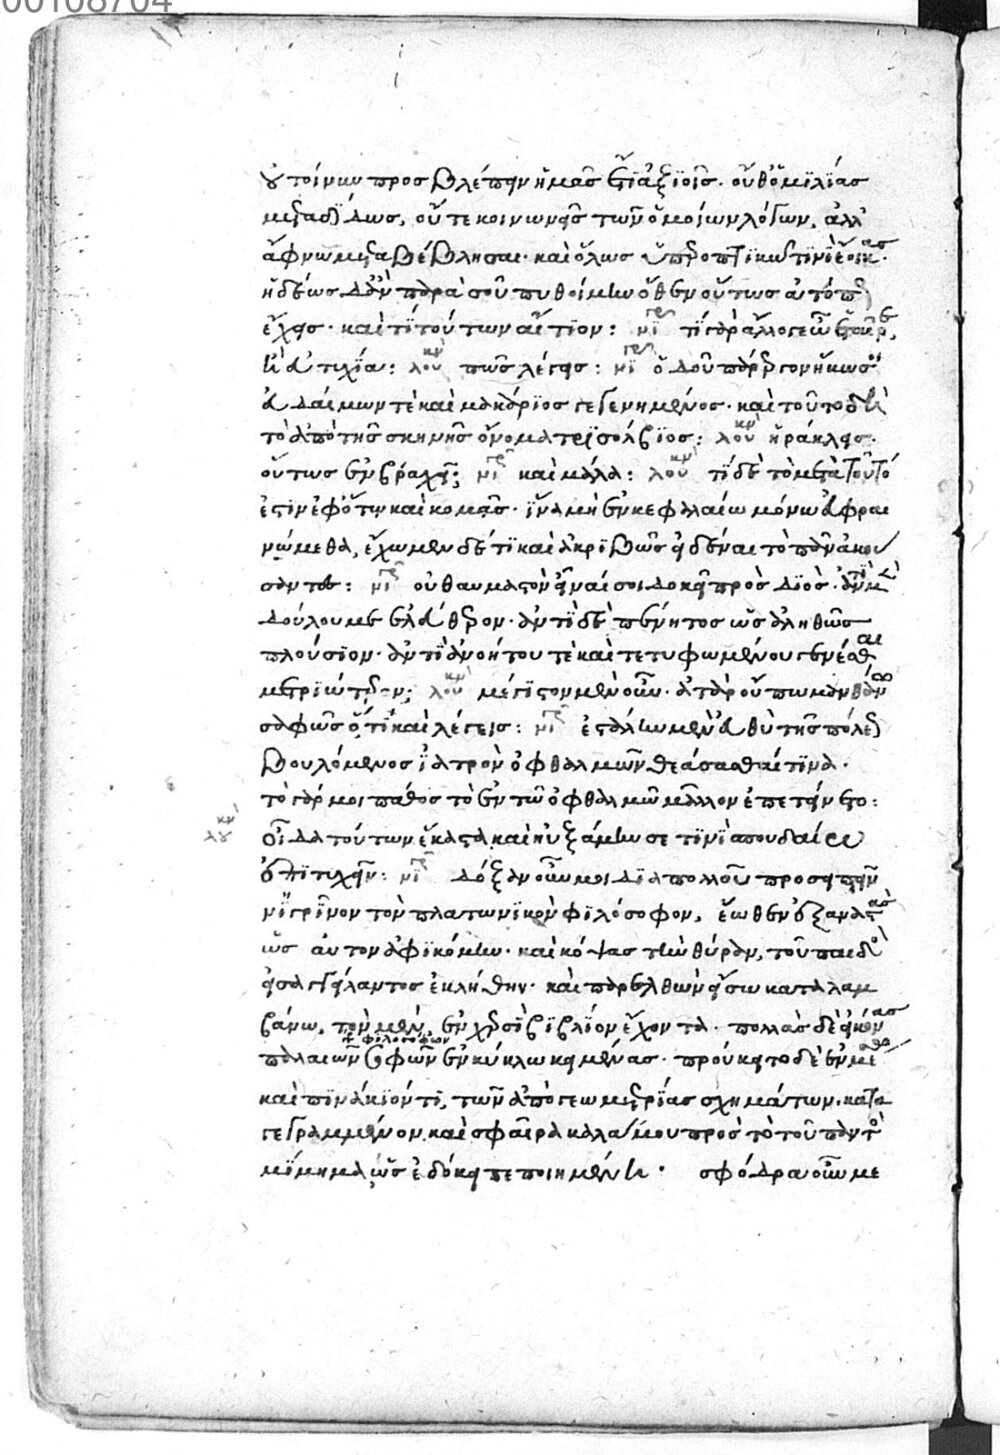 00108704
οὐ τοίνυν προσβλέπειν ἡμᾶς ἔτι ἀξιοῖς. οὔθ' ὁμιλίας
μεταδίδως, οὔτε κοινωνεῖς τῶν ὁμοίων λόγων, ἀλλ'
ἄφνω μεταβέβλησαι. καὶ ὅλως ὑπεροπτικῷ τινὶ ἔοικας.
ἡδέως δ' ἂν παρὰ σοῦ πυθοίμην ὅθεν οὕτως ἀτόπως
ἔχεις. καὶ τί τούτων αἴτιον: νι τί γὰρ ἄλλο γε ὦ ἑταῖρε,
ἢ εὐτυχία: λουκν πῶς λέγεις: νιγρ ὁδοῦ πάρεργον ἥκω σοι
εὐδαίμων τε καὶ μακάριος γεγενημένος. καὶ τοῦτο δὴ
τὸ ἀπὸ τῆς σκηνῆς ὄνομα τρισόλβιος: λουκν ἡράκλεις.
οὕτως ἐν βραχεῖ; νιγρ καὶ μάλα: λουκν τί δὲ τὸ μετὰ τοῦτό
ἐστιν ἐφ' ὅτω καὶ κομᾶς. ἵνα μὴ ἐν κεφαλαίω μόνω εὐφραι
νώμεθα, ἔχωμεν δέ τι καὶ ἀκριβῶς εἰδέναι τὸ πᾶν ἀκού
σαντες: νιγρ οὐ θαυμαστὸν εἶναί σοι δοκεῖ πρὸς διὸς. ἀντὶ μὲν
δούλου με ἐλεύθερον. ἀντὶ δὲ πένητος ὡς ἀληθῶς
πλούσιον. ἀντὶ δὲ ἀνοήτου τε καὶ τετυφωμένου γενέσθαι
μετριώτερον; λουκν μέγιστον μὲν οὖν. ἀτὰρ οὔπω μανθάνω
σαφῶς ὅ,τι καὶ λέγεις: νιγρ ἐστάλην μὲν εὐθὺ τῆς πόλεως
βουλόμενος ἰατρὸν ὀφθαλμῶν θεάσασθαί τινα.
τὸ γάρ μοι πάθος τὸ ἐν τῶ ὀφθαλμῶ μᾶλλον ἐπετείνετο:
λουκν οἶδα τούτων ἕκαστα, καὶ ηὐξάμην σε τινὶ σπουδαίω
ἐπιτυχεῖν: νιγρ δόξαν οὖν μοι διὰ πολλοῦ προσειπεῖν
νιγρῖνον τὸν πλατωνικὸν φιλόσοφον, ἕωθεν ἐξαναστὰς
ὡς αὐτὸν ἀφικόμην. καὶ κόψας τὴν θύραν, τοῦ παιδὸς
εἰσαγγείλαντος ἐκλήθην. καὶ παρελθὼν εἴσω καταλαμ
βάνω, τὸν μὲν, ἐν χερσὶ βιβλίον ἔχοντα. πολλὰς δὲ εἰκόνας
παλαιῶν σοφῶν ἐν κύκλω κειμένας. προύκειτο δὲ ἐν μέσω
καὶ πινάκιόν τι, τῶν ἀπὸ γεωμετρίας σχημάτων, κατα
γεγραμμένον. καὶ σφαῖρα καλάμου πρὸς τὸ τοῦ παντὸς
μίμημα, ὡς ἐδόκει πεποιημένη. σφόδρα οὖν με